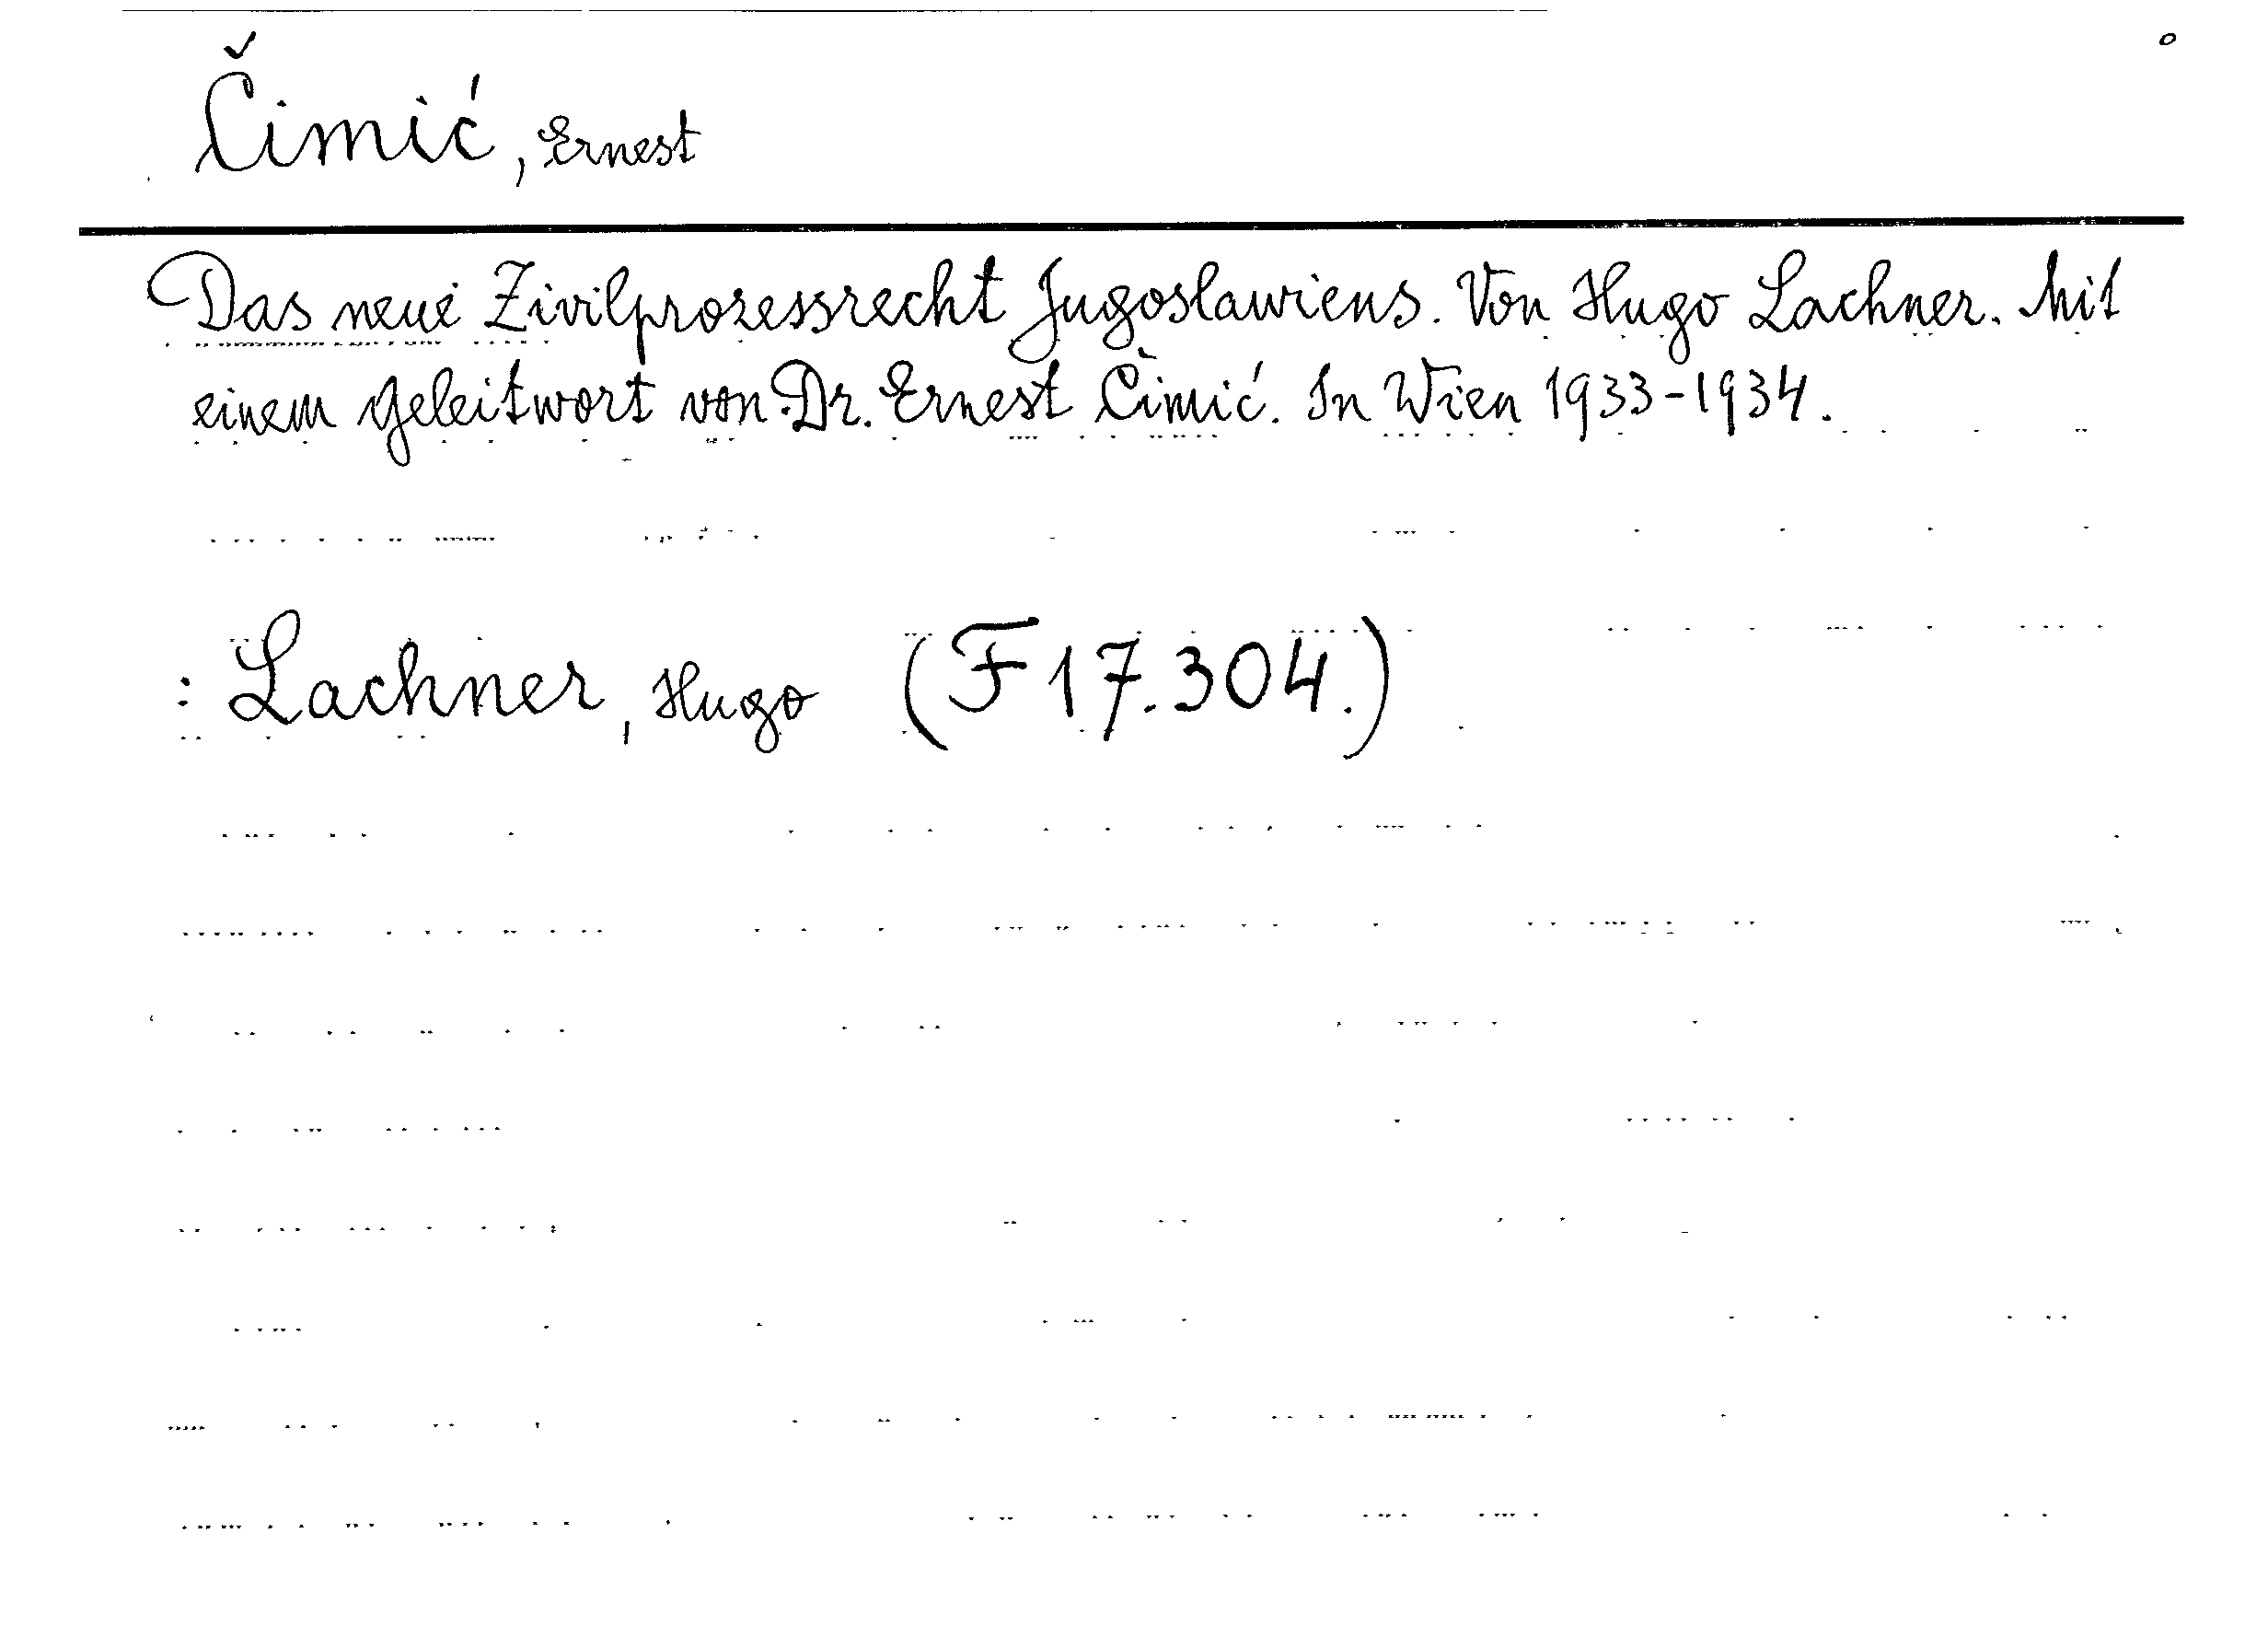 Čimić, Ernest
Das neue Zivilprozessrecht Jugoslawiens. Von Hugo Lachner. Mit
einem Geleitwort von Dr. Ernest Čimić. In Wien 1933-1934.
: Lachner, Hugo (F 17.304.)